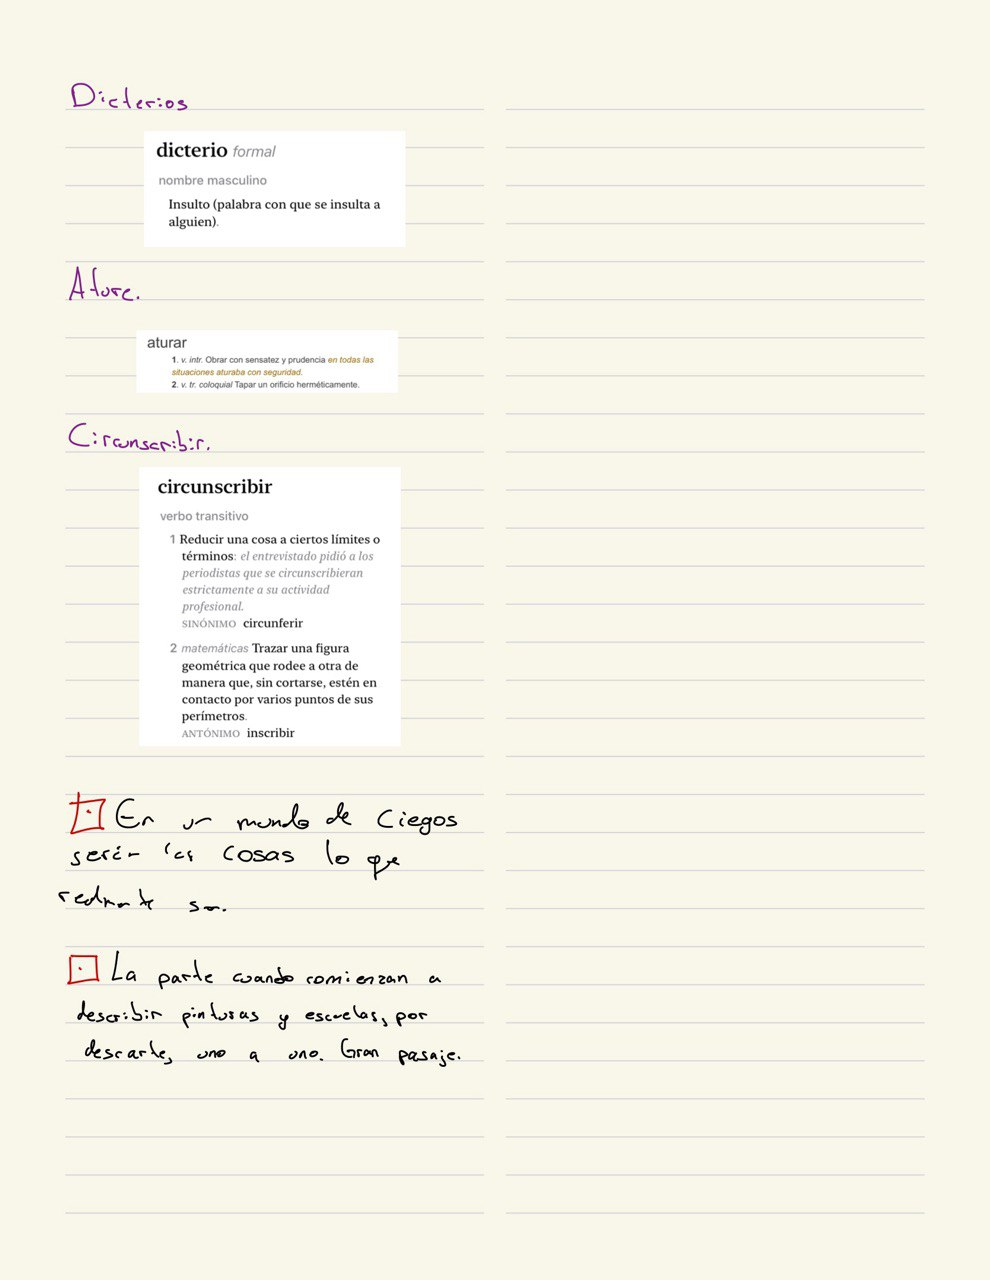 Dicterios
dicterio formal
nombre masculino
Insulto (palabra con que se insulta a
alguien).
Ature.
aturar
1. v. intr. Obrar con sensatez y prudencia en todas las
situaciones aturaba con seguridad.
2. v. tr. coloquial Tapar un orificio herméticamente.
Circunscribir.
circunscribir
verbo transitivo
1 Reducir una cosa a ciertos límites o
términos: el entrevistado pidió a los
periodistas que se circunscribieran
estrictamente a su actividad
profesional.
SINÓNIMO circunferir
2 matemáticas Trazar una figura
geométrica que rodee a otra de
manera que, sin cortarse, estén en
contacto por varios puntos de sus
perímetros.
ANTÓNIMO inscribir
En un mundo de Ciegos
serán las cosas lo que
son.
La parte cuando comienzan a
describir pinturas y escuelas, por
descarte, uno a uno. Gran pasaje.